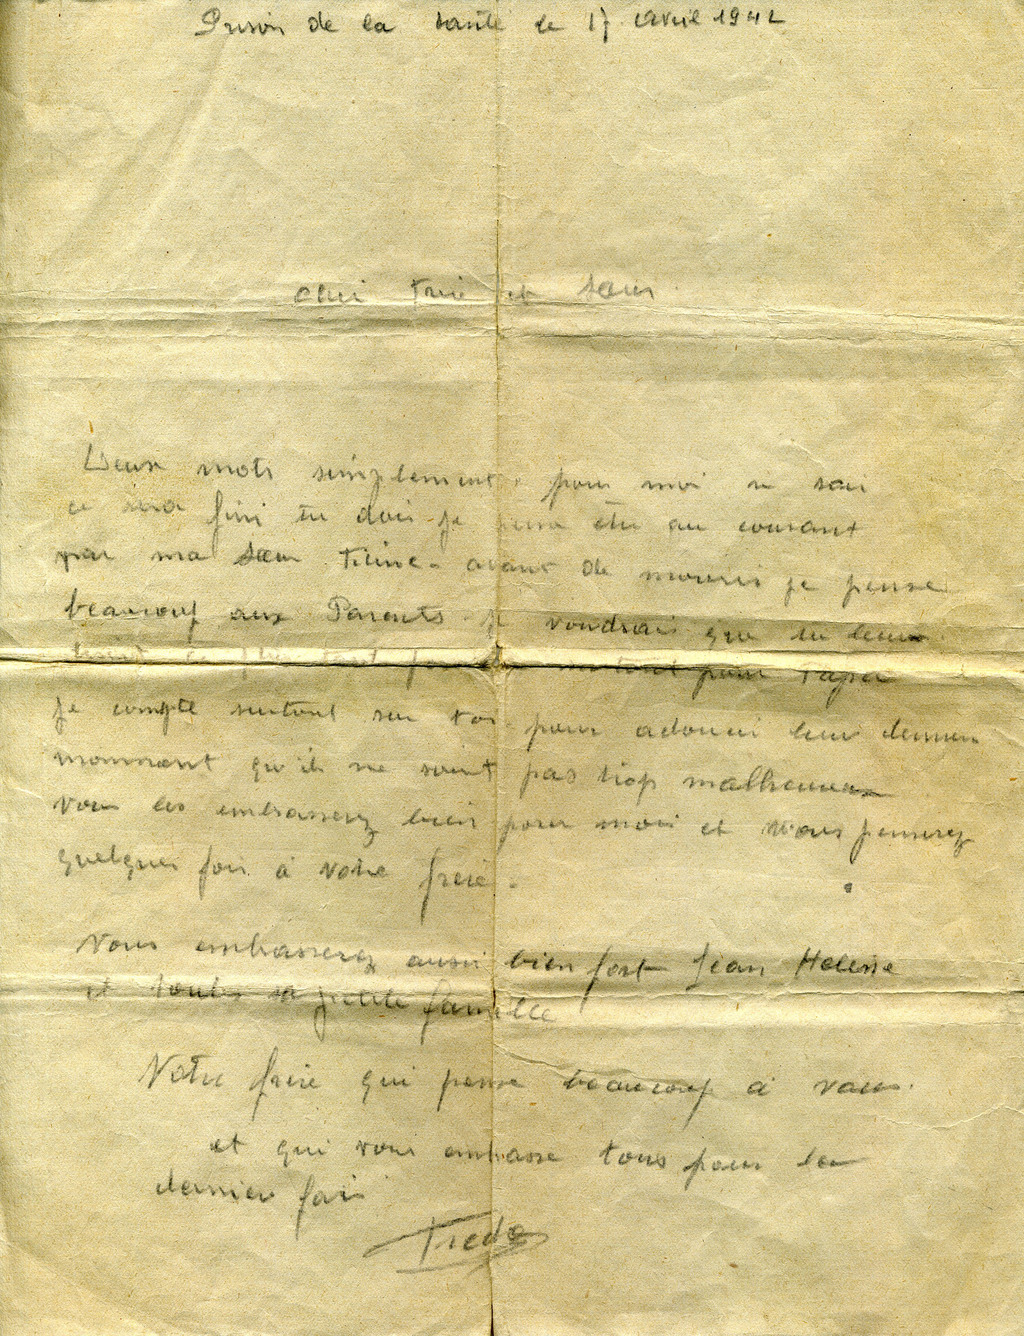 Prison de la santé le 17 Avril 1942
Cher frere et sœur
Deux mots simplement pour moi ce soir
ce sera fini tu dois je pense être au courant
par ma sœur Titine. avant de mourir je pense
beaucoup aux Parents je voudrais que tu leur
surtout pour Papa
je compte surtout sur toi pour adoucir leur dernier
momment qu'ils ne soient pas trop malheureux
vous les embrasserez bien pour moi et vous penserez
quelques fois à votre frere.
Vous embrasserez aussi bien fort Jean Helene
et toute sa petite famille
Votre frere qui pense beaucoup a vous.
et qui vous embrasse tous pour la
derniere fois
Fredo